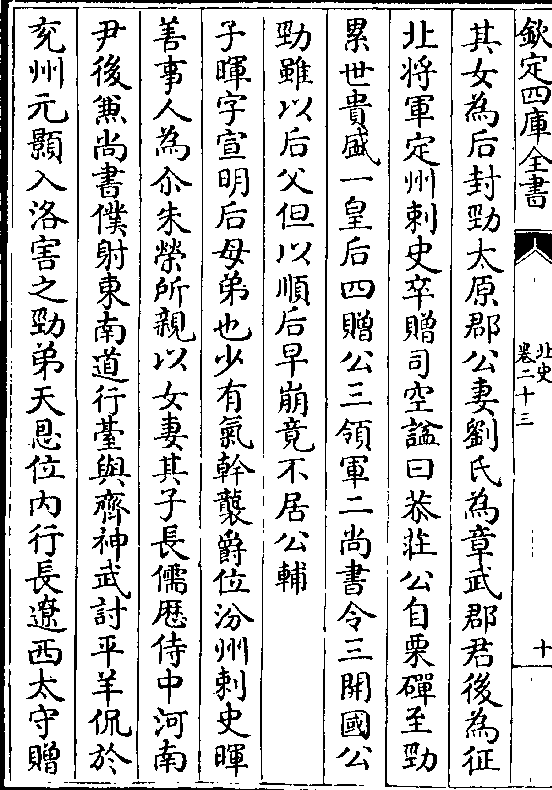 欽定四庫全書
北史
卷二十三
十
其女為后封勁太原郡公妻劉氏為章武郡君後為征
北将軍定州刺史卒贈司空諡曰恭莊公自栗磾至勁
累世貴盛一皇后四贈公三領軍二尚書令三開國公
勁雖以后父但以順后早崩竟不居公輔
子暉字宣明后母弟也少有氣幹襲爵位汾州刺史暉
善事人為尒朱榮所親以女妻其子長儒歴侍中河南
尹後兼尚書僕射東南道行臺與齊神武討平羊侃於
兗州元顥入洛害之勁弟天恩位内行長遼西太守贈